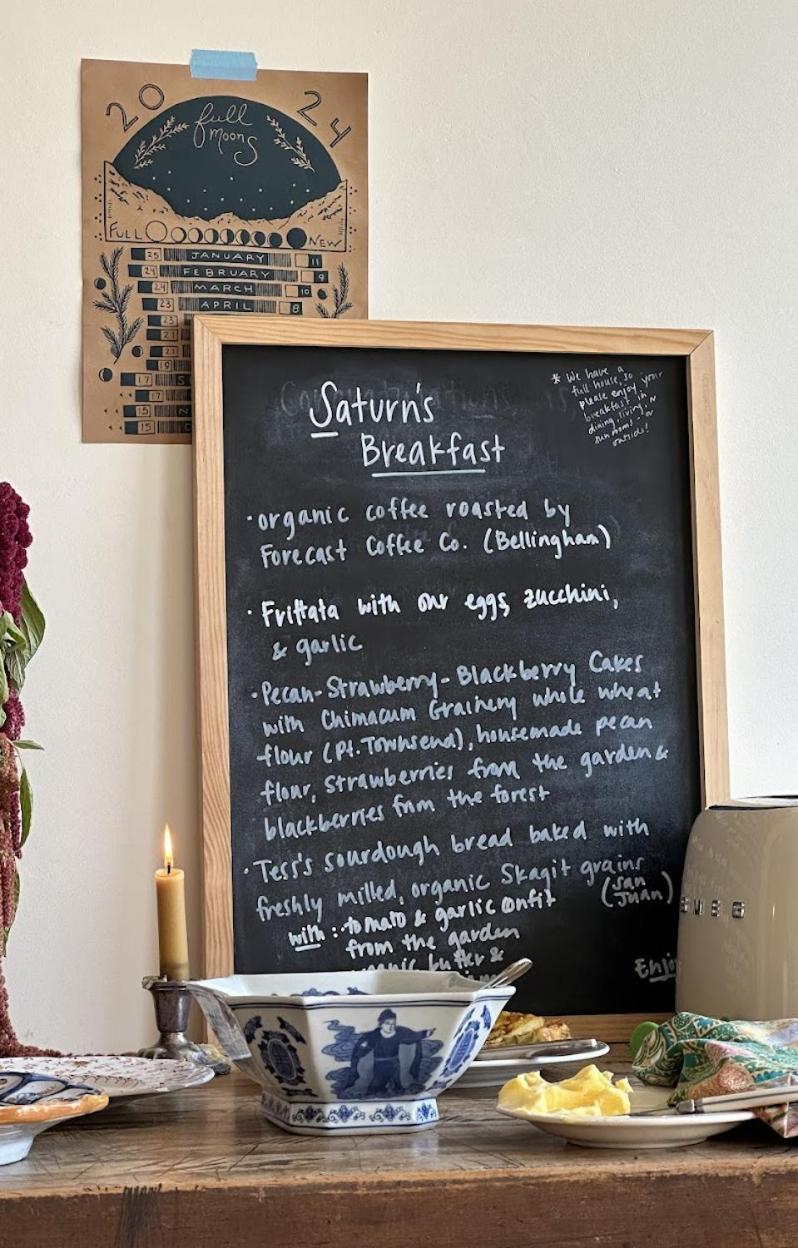 2024
full
moons
FULL NEW
25 JANUARY 11
24 FEBRUARY 9
MARCH 10
23 APRIL 8
23
21
21
19
17 S
17
15 N
15
Saturn's
Breakfast
* We have a
full house, so
please enjoy your
breakfast in
dining, living, or
sun rooms - or
outside!
• organic coffee roasted by
Forecast Coffee Co. (Bellingham)
• Frittata with our eggs, zucchini,
& garlic
• Pecan-Strawberry-Blackberry Cakes
with Chimacum Grainery whole wheat
flour (Pt. Townsend), housemade pecan
flour, strawberries from the garden &
blackberries from the forest
• Tess's sourdough bread baked with
freshly milled, organic Skagit grains
(San
Juan)
with: tomato & garlic confit
from the garden
butter &
Enjo
SMEG